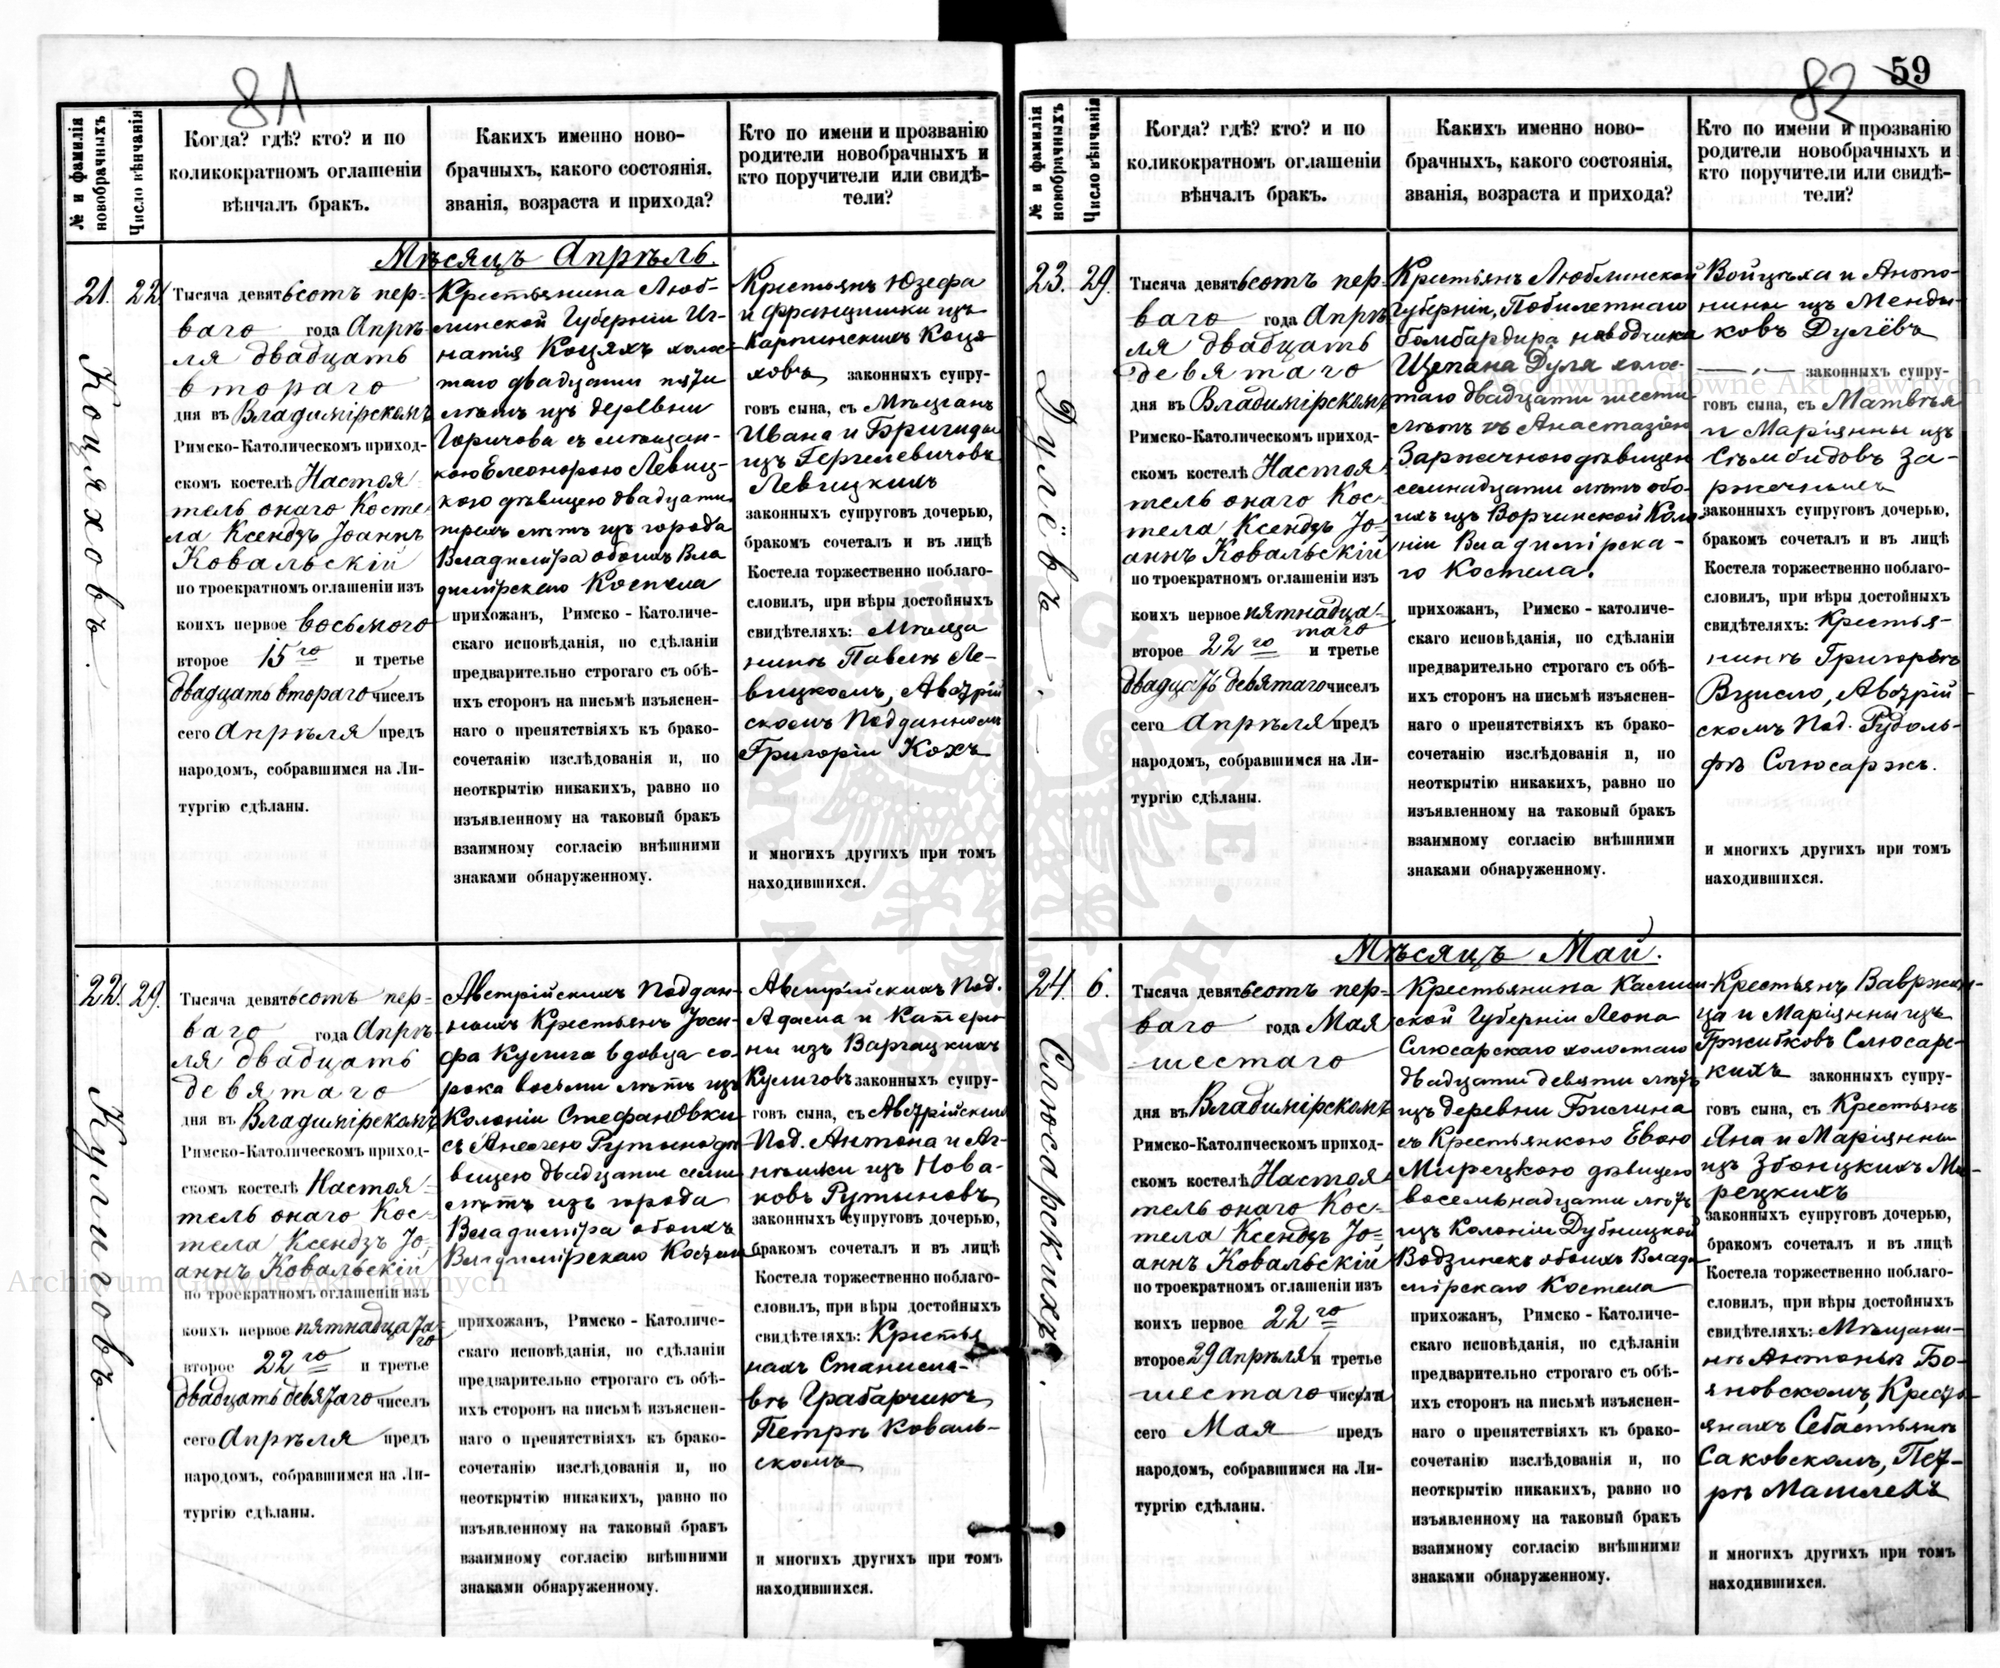 81
№ и фамилія новобрачныхъ
Число вѣнчанія
Когда? гдѣ? кто? и по
коликократномъ оглашеніи
вѣнчалъ бракъ.
Какихъ именно ново-
брачныхъ, какого состоянія,
званія, возраста и прихода?
Кто по имени и прозванію
родители новобрачныхъ и
кто поручители или свидѣ-
тели?
Мѣсяцъ Апрѣль.
21.
22.
Коцяховъ.
Тысяча девятьсотъ пер-
ваго года Апрѣ-
ля двадцать
втораго
дня въ Владимірскомъ
Римско-Католическомъ приход-
скомъ костелѣ Настоя
тель онаго Косте
ла Ксендзъ Іоаннъ
Ковальскій
по троекратномъ оглашеніи изъ
коихъ первое восьмого
второе 15го и третье
двадцать втораго чиселъ
сего Апрѣля предъ
народомъ, собравшимся на Ли-
тургію сдѣланы.
Крестьянина Люб-
линской Губерніи Иг-
натія Коцяхъ холос-
таго двадцати пяти
лѣтъ изъ деревни
Горичова съ мѣщан-
кою Елеонорою Левиц-
кою дѣвицею двадцати
трехъ лѣтъ изъ города
Владиміра обоихъ Вла
димірскаго Костела
прихожанъ, Римско - Католиче-
скаго исповѣданія, по сдѣланіи
предварительно строгаго съ обѣ-
ихъ сторонъ на письмѣ изъяснен-
наго о препятствіяхъ къ брако-
сочетанію изслѣдованія и, по
неоткрытію никакихъ, равно по
изъявленному на таковый бракъ
взаимному согласію внѣшними
знаками обнаруженному.
Крестьянъ Юзефа
и Францишки изъ
Карпинскихъ Коця-
ховъ законныхъ супру-
говъ сына, съ Мѣщанъ
Ивана и Бригиды
изъ Гергелевичовъ
Левицкихъ
законныхъ супруговъ дочерью,
бракомъ сочеталъ и въ лицѣ
Костела торжественно поблаго-
словилъ, при вѣры достойныхъ
свидѣтеляхъ: Мѣща
нинѣ Павлѣ Ле-
вицкомъ, Австрій
скомъ Подданномъ
Григоріи Кохъ
и многихъ другихъ при томъ
находившихся.
22.
29.
Кулиговъ.
Тысяча девятьсотъ пер-
ваго года Апрѣ-
ля двадцать
девятаго
дня въ Владимірскомъ
Римско-Католическомъ приход-
скомъ костелѣ Настоя-
тель онаго Кос-
тела Ксендзъ Іо-
аннъ Ковальскій
по троекратномъ оглашеніи изъ
коихъ первое пятнадцата
го
второе 22го и третье
двадцать девятаго чиселъ
сего Апрѣля предъ
народомъ, собравшимся на Ли-
тургію сдѣланы.
Австрійскихъ Поддан-
ныхъ Крестьянъ Іоси-
фа Кулига вдовца со-
рока восьми лѣтъ изъ
Колоніи Стефановки
съ Анелею Рутына дѣ
вицею двадцати семи
лѣтъ изъ города
Владиміра обоихъ
Владимірскаго Костела
прихожанъ, Римско - Католиче-
скаго исповѣданія, по сдѣланіи
предварительно строгаго съ обѣ-
ихъ сторонъ на письмѣ изъяснен-
наго о препятствіяхъ къ брако-
сочетанію изслѣдованія и, по
неоткрытію никакихъ, равно по
изъявленному на таковый бракъ
взаимному согласію внѣшними
знаками обнаруженному.
Австрійскихъ Под.
Адама и Катери
ны изъ Варгацкихъ
Кулиговъ законныхъ супру-
говъ сына, съ Австрійскихъ
Под. Антона и Аг-
нѣшки изъ Нова-
ковъ Рутыновъ
законныхъ супруговъ дочерью,
бракомъ сочеталъ и въ лицѣ
Костела торжественно поблаго-
словилъ, при вѣры достойныхъ
свидѣтеляхъ: Крестья
нахъ Станисла-
вѣ Грабарчикъ
Петрѣ Коваль-
скомъ
и многихъ другихъ при томъ
находившихся.
82
59
№ и фамилія новобрачныхъ
Число вѣнчанія
Когда? гдѣ? кто? и по
коликократномъ оглашеніи
вѣнчалъ бракъ.
Какихъ именно ново-
брачныхъ, какого состоянія,
званія, возраста и прихода?
Кто по имени и прозванію
родители новобрачныхъ и
кто поручители или свидѣ-
тели?
23.
29.
Дулёвъ.
Тысяча девятьсотъ пер-
ваго года Апрѣ
ля двадцать
девятаго
дня въ Владимірскомъ
Римско-Католическомъ приход-
скомъ костелѣ Настоя
тель онаго Кос-
тела Ксендзъ Іо-
аннъ Ковальскій
по троекратномъ оглашеніи изъ
коихъ первое пятнадца-
таго
второе 22го и третье
двадцать девятаго чиселъ
сего Апрѣля предъ
народомъ, собравшимся на Ли-
тургію сдѣланы.
Крестьянъ Люблинской
Губерніи, Побилетнаго
бомбардира наводчика
Щепана Дуля холос-
таго двадцати шести
лѣтъ съ Анастазіею
Заржечною дѣвицею
семнадцати лѣтъ обо-
ихъ изъ Ворчинской Коло
ніи Владимірска-
го Костела.
прихожанъ, Римско - католиче-
скаго исповѣданія, по сдѣланіи
предварительно строгаго съ обѣ-
ихъ сторонъ на письмѣ изъяснен-
наго о препятствіяхъ къ брако-
сочетанію изслѣдованія и, по
неоткрытію никакихъ, равно по
изъявленному на таковый бракъ
взаимному согласію внѣшними
знаками обнаруженному.
Войцѣха и Анто-
нины изъ Менды-
ковъ Дулёвъ
законныхъ супру-
говъ сына, съ Матвѣя
и Маріянны изъ
Сѣмбидовъ За-
ржечныхъ
законныхъ супруговъ дочерью,
бракомъ сочеталъ и въ лицѣ
Костела торжественно поблаго-
словилъ, при вѣры достойныхъ
свидѣтеляхъ: Крестья-
нинѣ Григорьѣ
Вцисло, Австрій-
скомъ Под. Рудоль-
фѣ Слюсаржъ.
и многихъ другихъ при томъ
находившихся.
Мѣсяцъ Май.
24.
6.
Слюсарскихъ.
Тысяча девятьсотъ пер-
ваго года Мая
шестаго
дня въ Владимірскомъ
Римско-Католическомъ приход-
скомъ костелѣ Настоя
тель онаго Кос-
тела Ксендзъ Іо-
аннъ Ковальскій
по троекратномъ оглашеніи изъ
коихъ первое 22го
второе 29 Апрѣля и третье
шестаго числа
сего Мая предъ
народомъ, собравшимся на Ли-
тургію сдѣланы.
Крестьянина Калиш-
ской Губерніи Леона
Слюсарскаго холостаго
двадцати девяти лѣтъ
изъ деревни Бислина
съ Крестьянкою Евою
Мирецкою дѣвицею
восемьнадцати лѣтъ
изъ Колоніи Дубницкой
Водзинекъ обоихъ Влади
мірскаго Костела
прихожанъ, Римско - Католиче-
скаго исповѣданія, по сдѣланіи
предварительно строгаго съ обѣ-
ихъ сторонъ на письмѣ изъяснен-
наго о препятствіяхъ къ брако-
сочетанію изслѣдованія и, по
неоткрытію никакихъ, равно по
изъявленному на таковый бракъ
взаимному согласію внѣшними
знаками обнаруженному.
Крестьянъ Вавржин-
ца и Маріянны изъ
Гржибковъ Слюсарс-
кихъ законныхъ супру-
говъ сына, съ Крестьянъ
Яна и Маріянны
изъ Збоицкихъ Ми-
рецкихъ
законныхъ супруговъ дочерью,
бракомъ сочеталъ и въ лицѣ
Костела торжественно поблаго-
словилъ, при вѣры достойныхъ
свидѣтеляхъ: Мѣщани-
нѣ Антоніѣ Бо-
яновскомъ, Кресть-
янахъ Себастьянѣ
Саковскомъ, Пет-
рѣ Машлехъ
и многихъ другихъ при томъ
находившихся.
Archiwum Główne Akt Dawnych
Archiwum Główne Akt Dawnych
ARCHIWUM GŁÓWNE AKT DAWNYCH